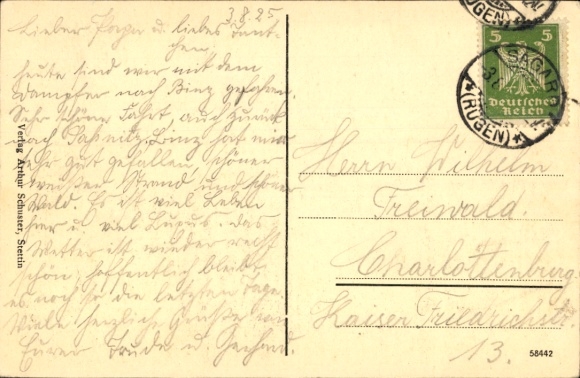 3.8.25
Lieber Papa u. liebes Tant-
chen,
heute sind wir mit dem
Dampfer nach Binz gefahren.
Sehr schöne Fahrt, auch zurück
nach Saßnitz. Binz hat mir
sehr gut gefallen, schöner
weißer Strand und schöner
Wald. Es ist viel Leben
hier u. viel Luxus. Das
Wetter ist wieder recht
schön; hoffentlich bleibt
es noch so die letzten Tage.
Viele herzliche Grüße von
Eurer Trude u. Gerhard.
Verlag Arthur Schuster, Stettin
(RÜGEN)
5 5
Deutsches
Reich
SAGARD
(RÜGEN)
Herrn Wilhelm
Freiwald.
Charlottenburg
Kaiser Friedrichstr.
13.
58442